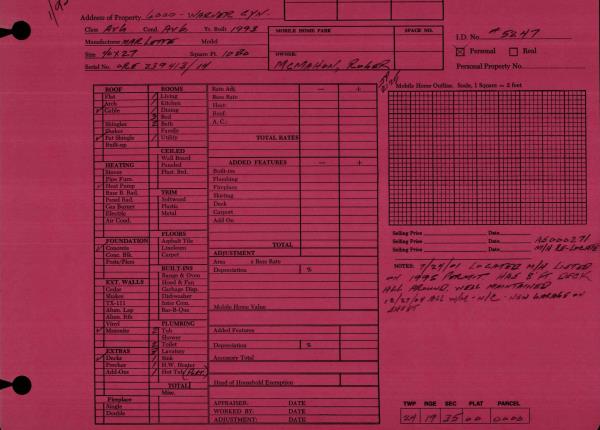 1/95
Address of Property 6000 - WARNER CYN.
Class AV6 Cond. AV6 Yr. Built 1993
Manufacturer MARLETTE Model
Size 40x27 Square Ft. 1080
Serial No. ORE 239413/14
MOBILE HOME PARK SPACE NO.
OWNER:
McMAHON, ROGER
I.D. No. # 5247
☒ Personal ☐ Real
Personal Property No.
ROOF
Flat
Arch
✓ Gable
Shingles
Shakes
✓ Fat Shingle
Built-up
HEATING
Stoves
Pipe Furn.
✓ Heat Pump
Base B. Rad.
Panel Rad.
Gas Burner
Electric
Air Cond.
FOUNDATION
✓ Concrete
Conc. Blk.
Posts/Piers
EXT. WALLS
Cedar
Shakes
TX-111
Alum. Lap
Alum. Rib
Vinyl
✓ Masonite
EXTRAS
✓ Decks
Porches
Add-Ons
Fireplace
Single
Double
ROOMS
1 Living
1 Kitchen
1 Dining
3 Bed
2 Bath
Family
1 Utility
CEILED
Wall Board
Paneled
Plast. Brd.
TRIM
Softwood
Plastic
Metal
FLOORS
Asphalt Tile
Linoleum
Carpet
BUILT-INS
Range & Oven
Hood & Fan
Garbage Disp.
Dishwasher
Inter Com.
Bar-B-Que
PLUMBING
2 Tub
Shower
2 Toilet
Lavatory
1 Sink
1 H.W. Heater
1 Hot Tub (PORT.)
TOTAL
Misc.
Rate Adj. — +
Base Rate
Heat:
Roof:
A. C.:
TOTAL RATES
ADDED FEATURES — +
Built-ins
Plumbing
Fireplace
Skirting
Deck
Carport
Add On
TOTAL
ADJUSTMENT
Area x Base Rate
Depreciation %
Mobile Home Value
Added Features
Depreciation %
Accessory Total
Head of Household Exemption
APPRAISER: DATE
WORKED BY: DATE
ADJUSTMENT: DATE
Mobile Home Outline. Scale, 1 Square = 2 feet
Selling Price Date
Selling Price Date
Selling Price Date
A5000271
M/H RE-LOCATE
NOTES: 7/24/01 LOCATED M/H LISTED
ON 1995 PERMIT HAS 8 FT DECK
ALL AROUND. WELL MAINTAINED
TWP RGE SEC PLAT PARCEL
24 19 35 00 0000